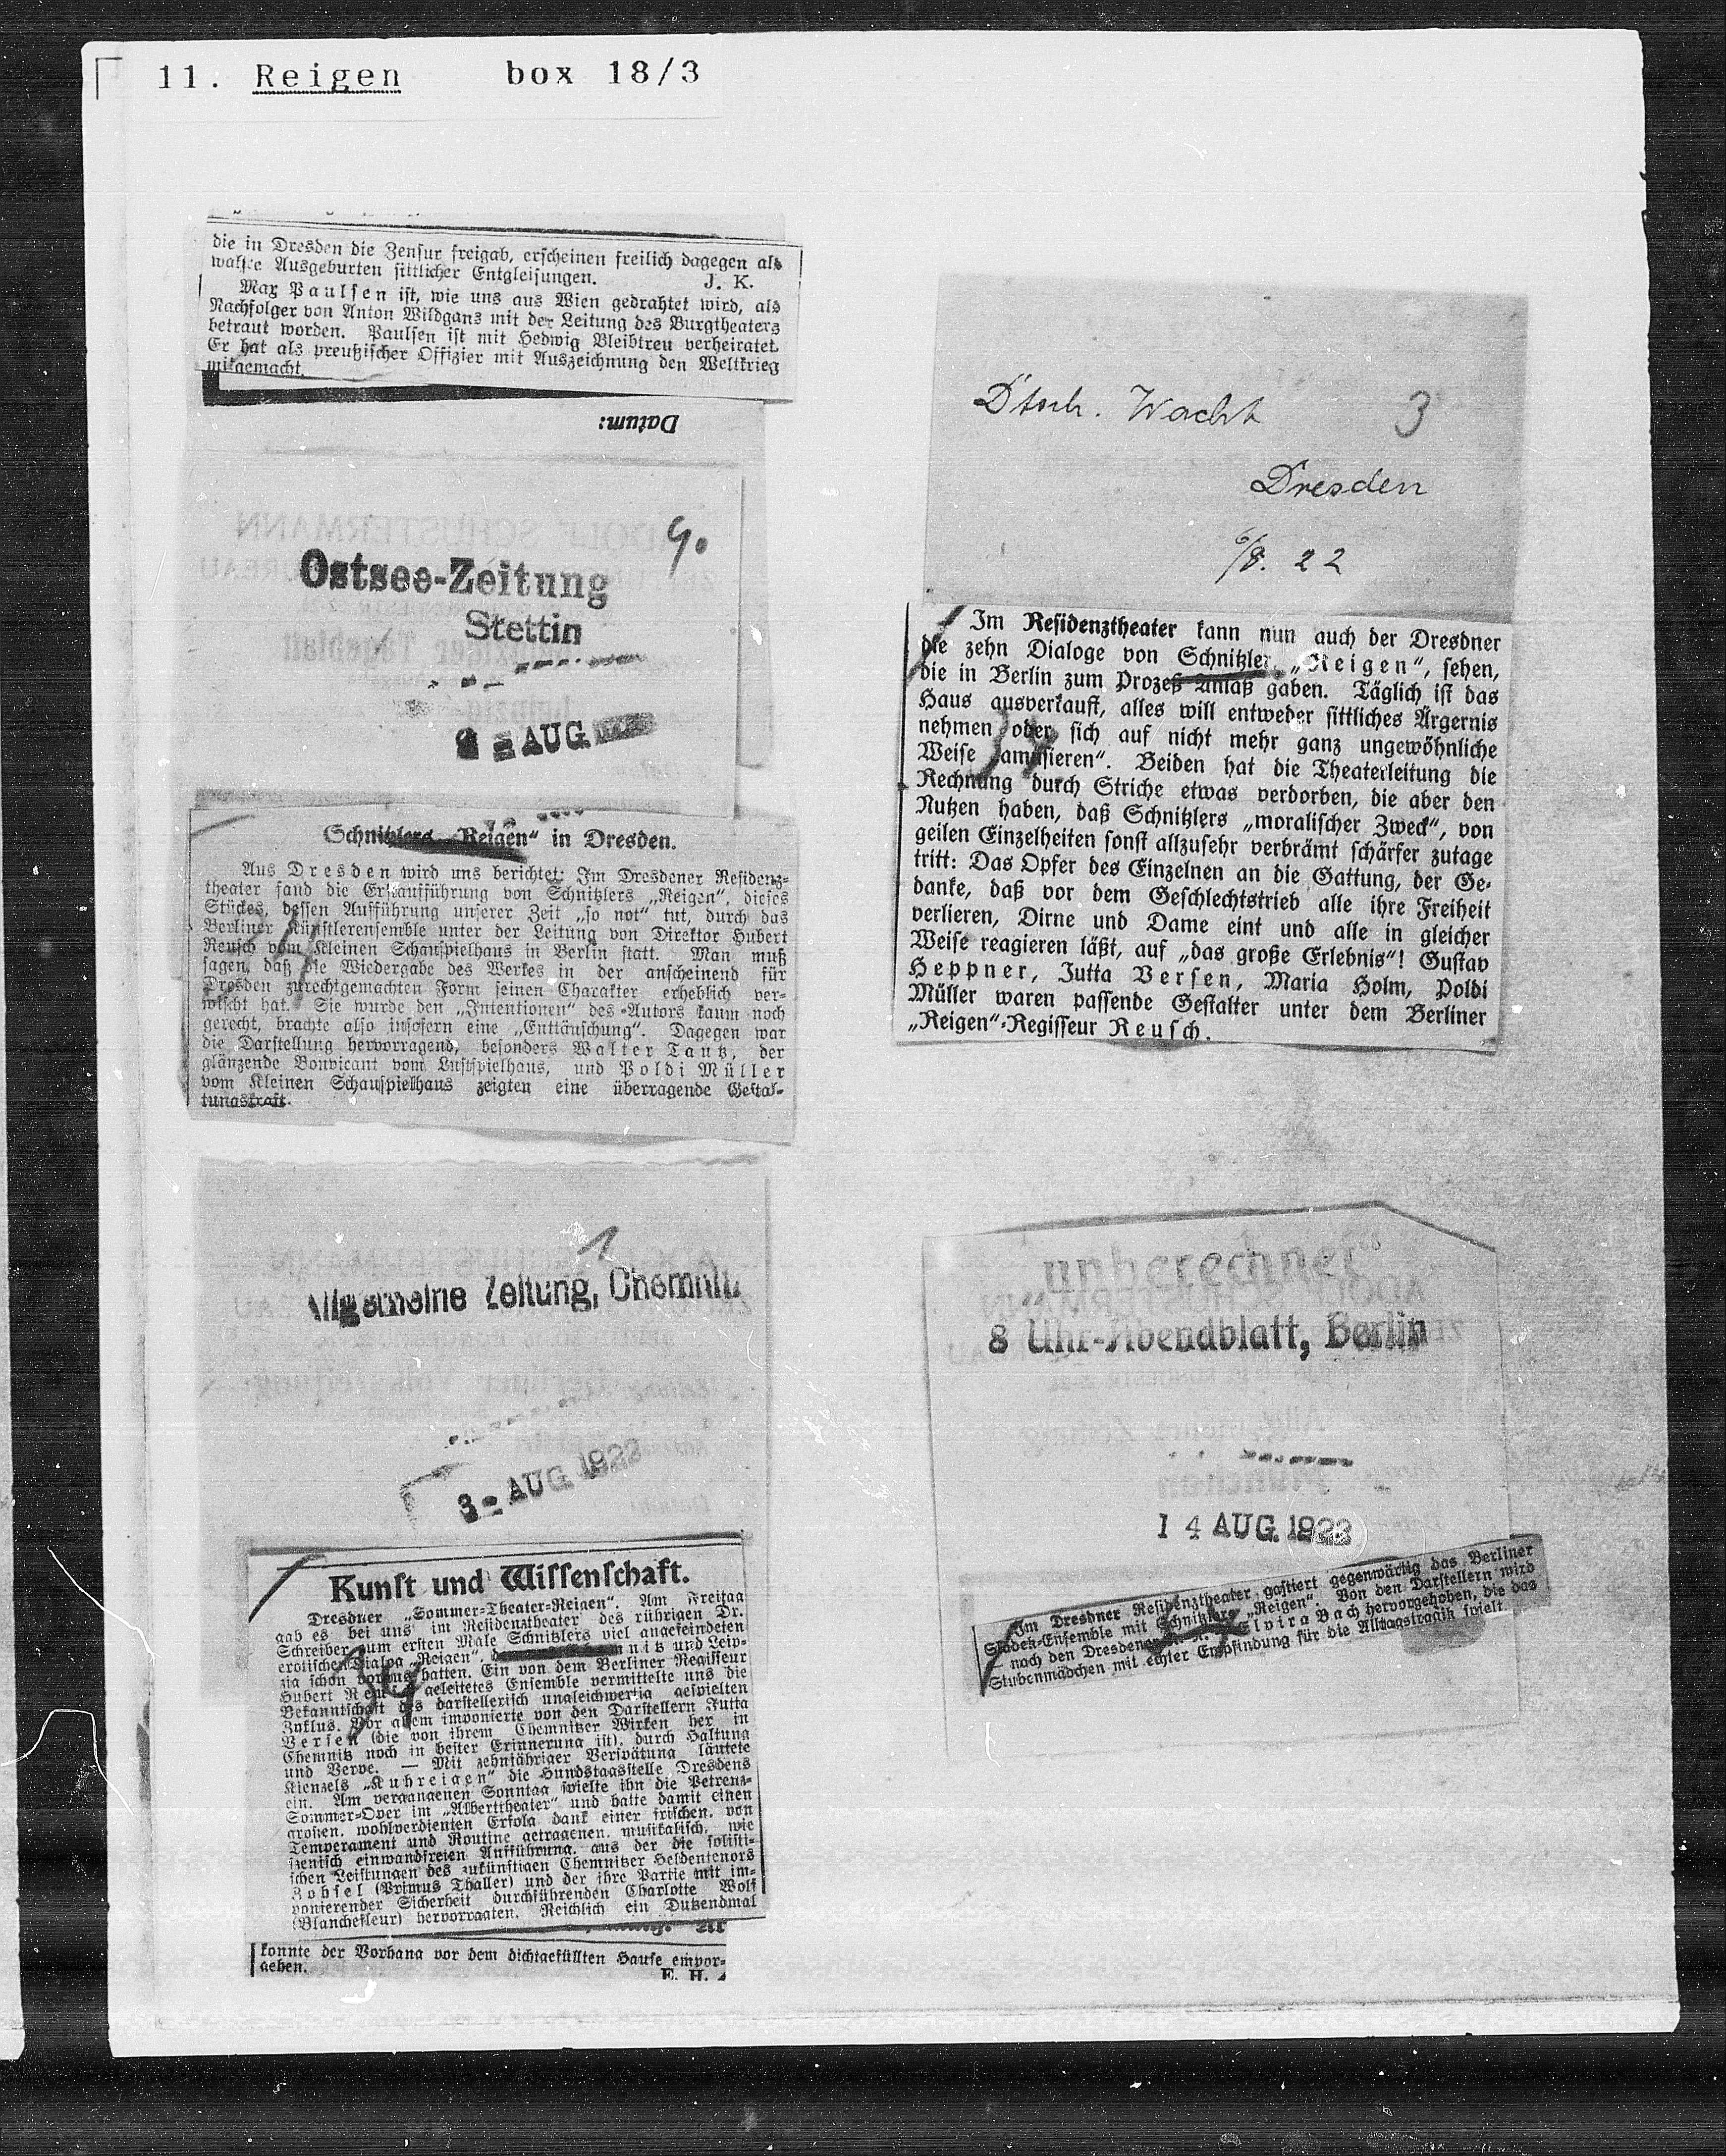 11. Reigen box 18/3
die in Dresden die Zensur freigab, erscheinen freilich dagegen als
wahre Ausgeburten sittlicher Entgleisungen. J. K.
Max Paulsen ist, wie uns aus Wien gedrahtet wird, als
Nachfolger von Anton Wildgans mit der Leitung des Burgtheaters
betraut worden. Paulsen ist mit Hedwig Bleibtreu verheiratet.
Er hat als preußischer Offizier mit Auszeichnung den Weltkrieg
mitgemacht.
Datum:
9.
Ostsee-Zeitung
Stettin
AUG
Schnitzlers „Reigen“ in Dresden.
Aus Dresden wird uns berichtet: Im Dresdener Residenz-
theater fand die Erstaufführung von Schnitzlers „Reigen“, dieses
Stückes, dessen Aufführung unserer Zeit „so not“ tut, durch das
Berliner Künstlerensemble unter der Leitung von Direktor Hubert
Reusch vom Kleinen Schauspielhaus in Berlin statt. Man muß
sagen, daß die Wiedergabe des Werkes in der anscheinend für
Dresden zurechtgemachten Form seinen Charakter erheblich ver-
wischt hat. Sie wurde den „Intentionen“ des Autors kaum noch
gerecht, brachte also insofern eine „Enttäuschung“. Dagegen war
die Darstellung hervorragend, besonders Walter Tautz, der
glänzende Bonvicant vom Lustspielhaus, und Poldi Müller
vom Kleinen Schauspielhaus zeigten eine überragende Gestal-
tungskraft.
1
Allgemeine Zeitung, Chemnitz
3 - AUG 1922
Kunst und Wissenschaft.
Dresdner „Sommer-Theater-Reigen“. Am Freitag
gab es bei uns im Residenztheater des rührigen Dr.
Schreiber zum ersten Male Schnitzlers viel angefeindeten
erotischen Dialog „Reigen“, Chemnitz und Leip-
zig schon voraus hatten. Ein von dem Berliner Regisseur
Hubert Reusch geleitetes Ensemble vermittelte uns die
Bekanntschaft des darstellerisch ungleichwertig gespielten
Zyklus. Vor allem imponierte von den Darstellern Jutta
Versen (die von ihrem Chemnitzer Wirken her in
Chemnitz noch in bester Erinnerung ist), durch Haltung
und Verve. — Mit zehnjähriger Verspätung läutete
Kienzels „Kuhreigen“ die Hundstagsstelle Dresdens
ein. Am vergangenen Sonntag spielte ihn die Petrenz-
Sommer-Oper im „Alberttheater“ und hatte damit einen
großen, wohlverdienten Erfolg dank einer frischen, von
Temperament und Routine getragenen, musikalisch, wie
szenisch einwandfreien Aufführung, aus der die solisti-
schen Leistungen des zukünftigen Chemnitzer Heldentenors
Zobsel (Primus Thaller) und der ihre Partie mit im-
ponierender Sicherheit durchführenden Charlotte Wolf
(Blanchefleur) hervorragten. Reichlich ein Dutzendmal
konnte der Vorhang vor dem dichtgefüllten Hause empor-
gehen. E. H.
Dtsch. Wacht 3
Dresden
6/8. 22
Im Residenztheater kann nun auch der Dresdner
die zehn Dialoge von Schnitzler, „Reigen“, sehen,
die in Berlin zum Prozeß Anlaß gaben. Täglich ist das
Haus ausverkauft, alles will entweder sittliches Ärgernis
nehmen oder sich auf nicht mehr ganz ungewöhnliche
Weise „amüsieren“. Beiden hat die Theaterleitung die
Rechnung durch Striche etwas verdorben, die aber den
Nutzen haben, daß Schnitzlers „moralischer Zweck“, von
geilen Einzelheiten sonst allzusehr verbrämt schärfer zutage
tritt: Das Opfer des Einzelnen an die Gattung, der Ge-
danke, daß vor dem Geschlechtstrieb alle ihre Freiheit
verlieren, Dirne und Dame eint und alle in gleicher
Weise reagieren läßt, auf „das große Erlebnis“! Gustav
Heppner, Jutta Versen, Maria Holm, Poldi
Müller waren passende Gestalter unter dem Berliner
„Reigen“-Regisseur Reusch.
„unberechnet“
8 Uhr-Abendblatt, Berlin
14 AUG. 1922
Im Dresdner Residenztheater gastiert gegenwärtig das Berliner
Sladek-Ensemble mit Schnitzlers „Reigen“. Von den Darstellern wird
— nach den Dresdener Elvira Bach hervorgehoben, die das
Stubenmädchen mit echter Empfindung für die Alltagstragik spielt.